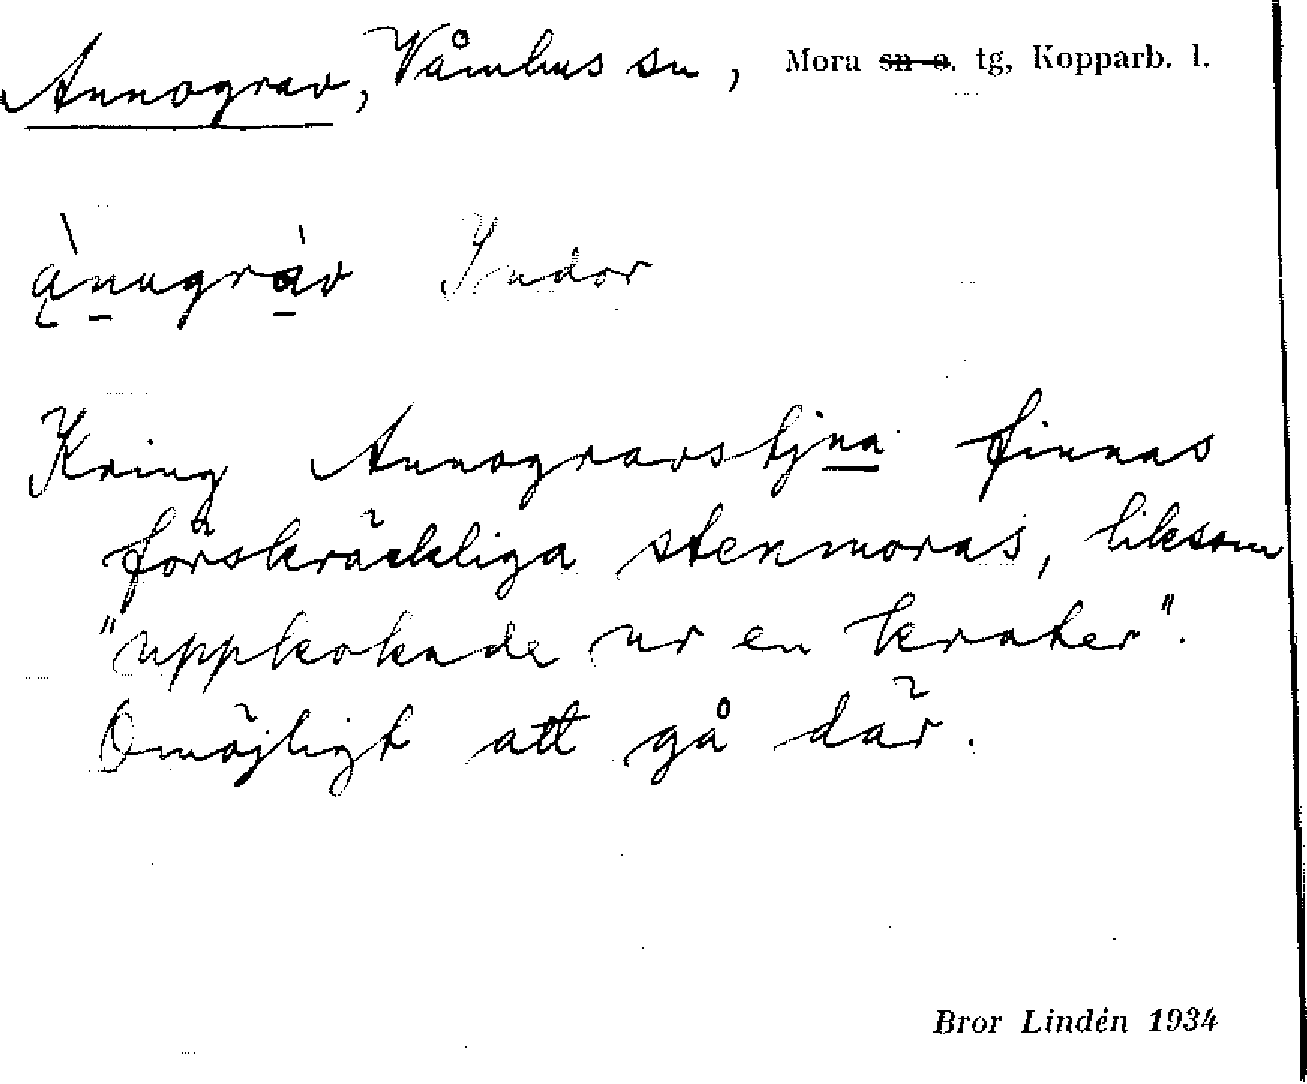 Annograv, Våmhus sn, Mora sn o. tg, Kopparb. l.
ą̀nugràv
Kring Annogravstjna finnas
förskräckliga stenmoras, liksom
"uppkokade ur en krater".
Omöjligt att gå där.
Bror Lindén 1934